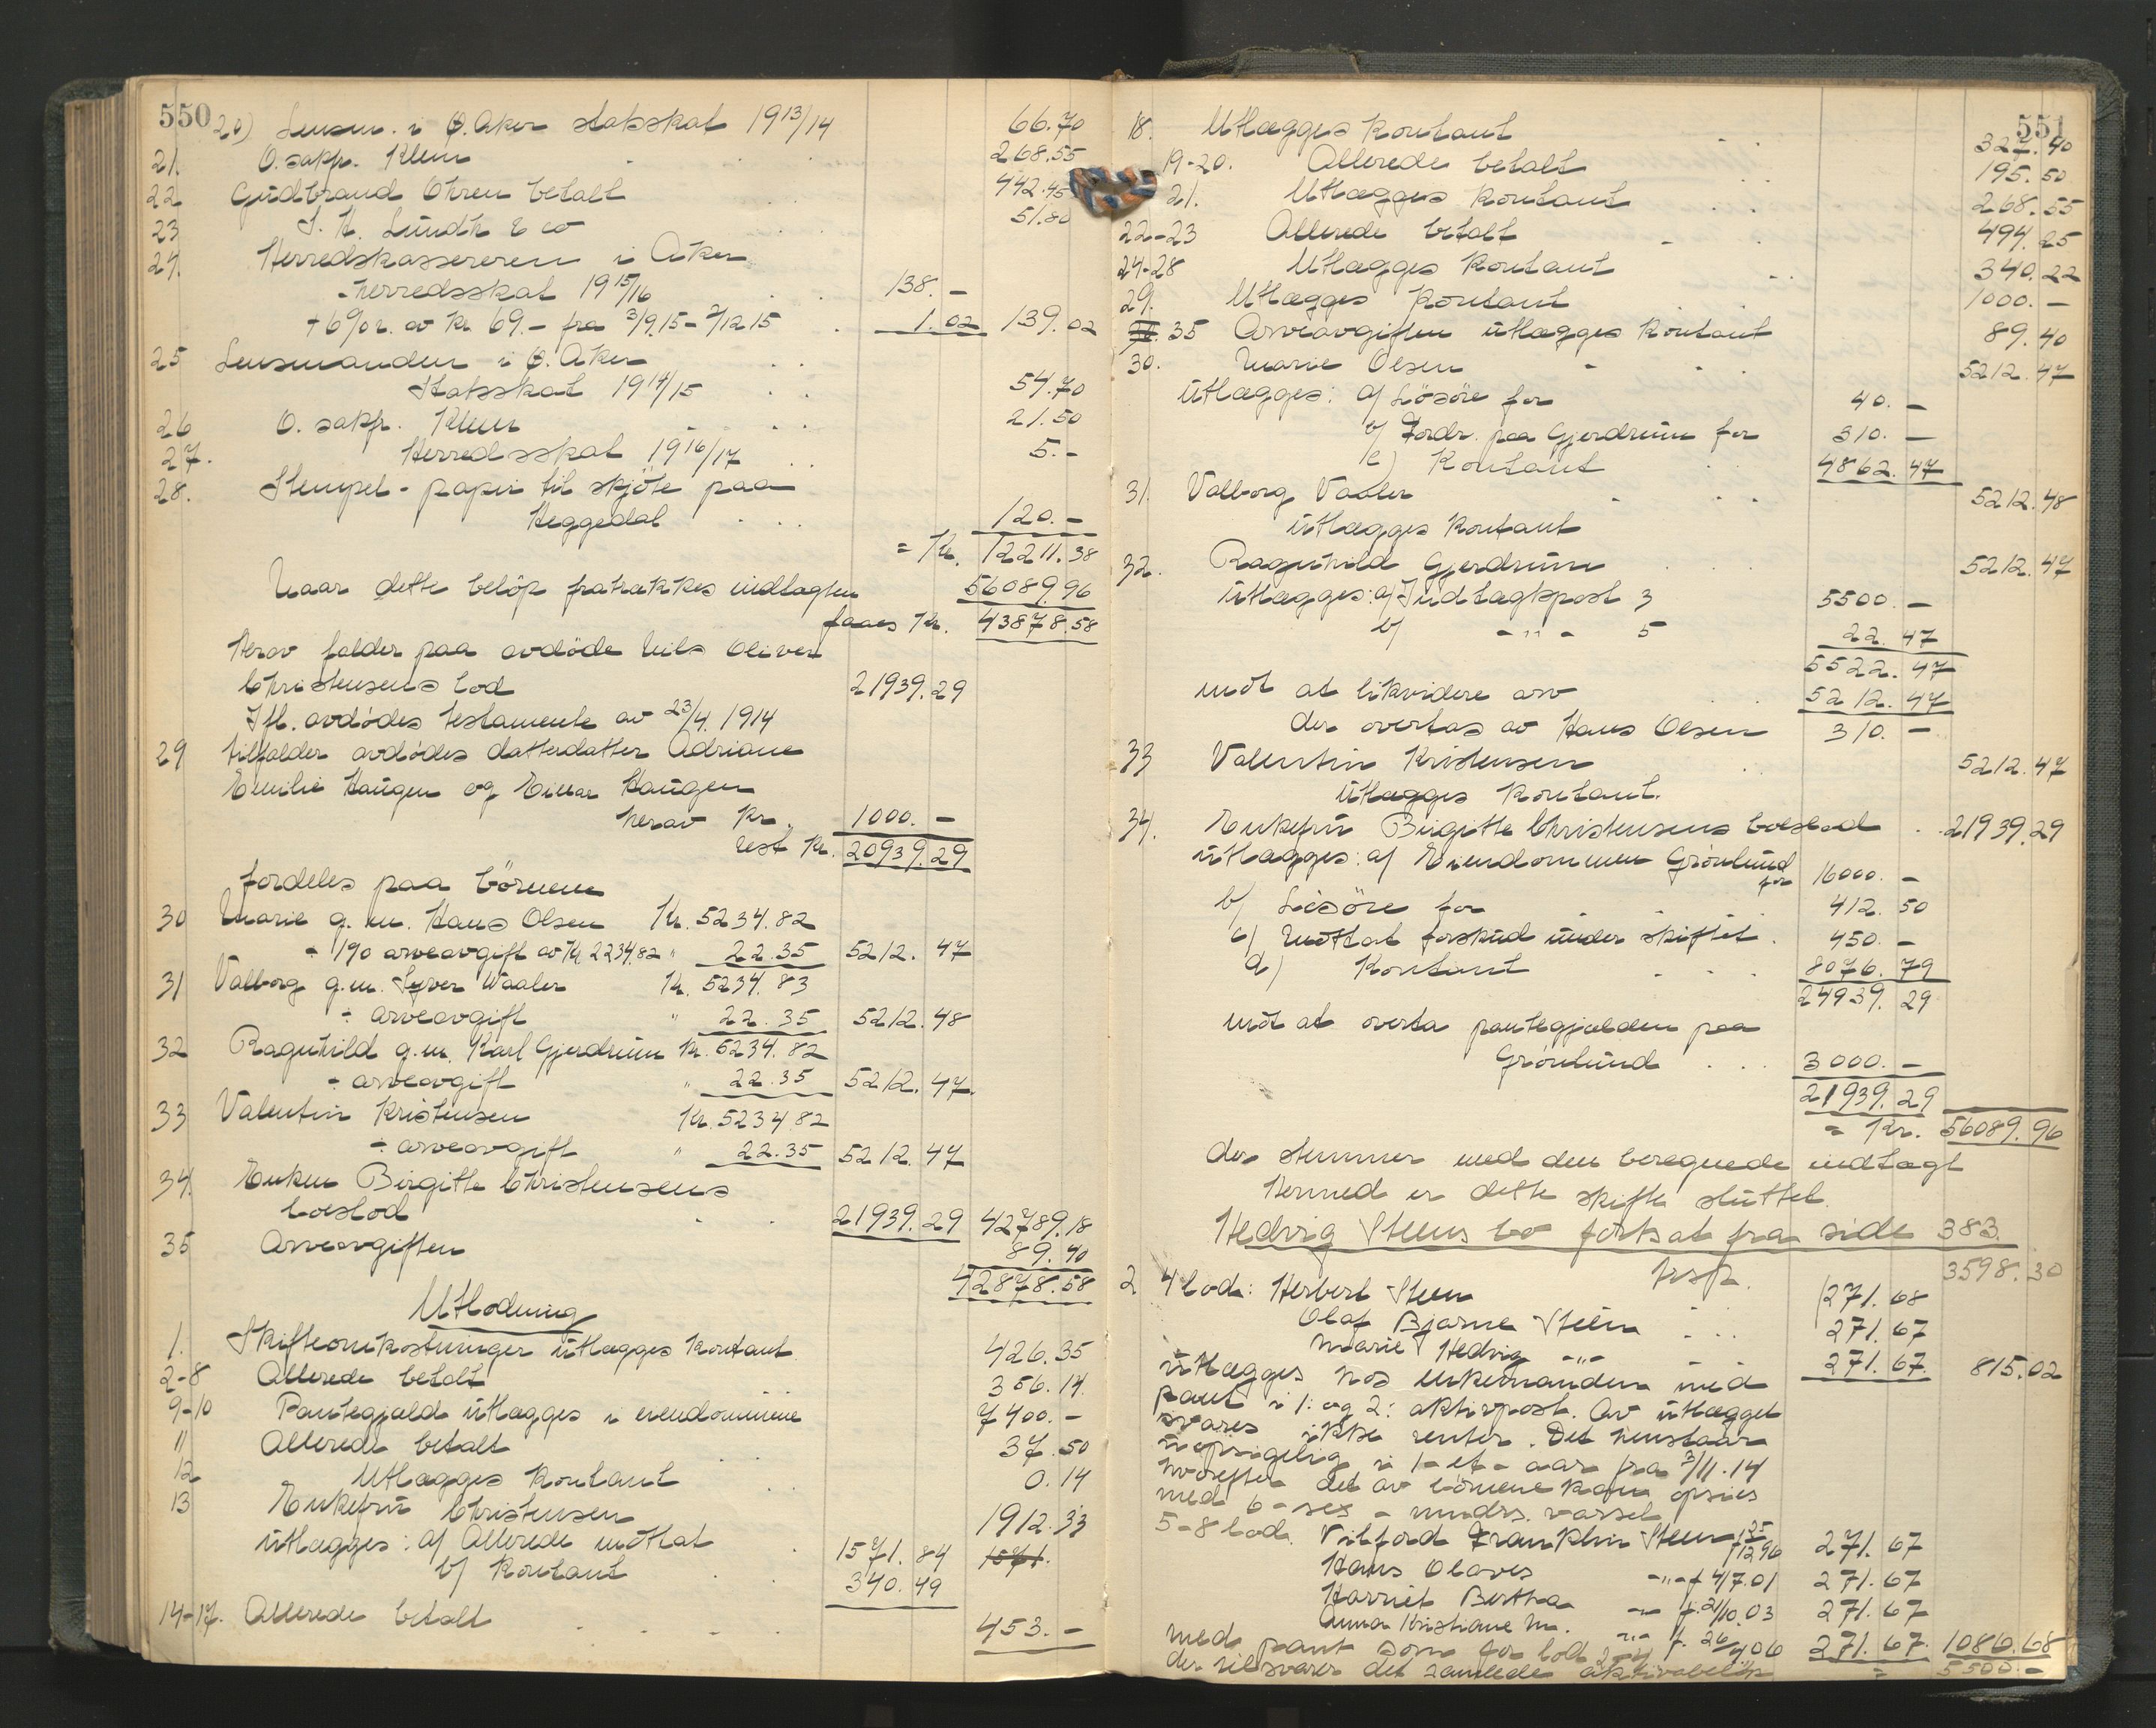 550
20) Lensm. i Ø. Aker statsskat 1913/14 66.70
21. O. sakfr. Klem 268.55
22 Gudbrand Ohren betalt 442.45
23 J. H. Lundh & co 51.80
24. Herredskassereren i Aker
herredsskat 1915/16 138.-
+ 6% r. av Kr. 69.- fra 3/9.15 - 2/12 15 1.02 139.02
25 Lensmanden i Ø. Aker
Statsskat 1914/15 54.70
26 O. sakfr. Klem 21.50
27. Herredsskat 1916/17 5.-
28. Stempel-papir til skjöte paa
Heggedal 120.-
= Kr. 12211.38
Naar dette belöp fratrækkes indtægten 56089.96
faaes Kr. 43878.58
Herav falder paa avdöde Nils Oliver
Christensens lod 21939.29
Ifl. avdödes testamente av 23/4. 1914
29 tilfalder avdödes datterdatter Adriane
Emilie Haugen og Einar Haugen
herav Kr. 1000.-
rest Kr. 20939.29
fordeles paa börnene
30 Marie g. m. Hans Olsen Kr. 5234.82
- 1% arveavgift av Kr 2234.82 " 22.35 5212.47
31 Valborg g.m. Syver Waaler Kr. 5234.83
÷ arveavgift " 22.35 5212.48
32 Ragnhild g.m. Karl Gjerdrum Kr. 5234.82
÷ arveavgift " 22.35 5212.47.
33 Valentin Kristensen Kr. 5234.82
÷ arveavgift " 22.35 5212.47
34. Enken Birgitte Christensens
boeslod 21939.29 42789.18
35 Arveavgiften 89.40
42878.58
Utlodning
1. Skifteomkostninger utlægges kontant 426.35
2-8 Allerede betalt 356.14.
9-10 Pantegjæld utlægges i eiendommene 7400.-
11 Allerede betalt 37.50
12 Utlægges kontant 0.14
13 Enkefru Christensen 1912.33
utlægges: a) Allerede mottat 1571.84 1571.
b) Kontant 340.49
14-17. Allerede betalt 453.-
551
18. Utlægges kontant 327.40
19-20. Allerede betalt 195.50
21. Utlægges kontant 268.55
22-23 Allerede betalt 494.25
24-28 Utlægges kontant 340.22
29. Utlægges kontant 1000.-
35 Arveavgiften utlægges kontant 89.40
30. Marie Olsen 5212.47
utlægges: a) Lösöre for 40.-
b) Fordr. paa Gjerdrum for 310.-
c) Kontant 4862.47
31. Valborg Vaaler 5212.48
utlægges kontant
32. Ragnhild Gjerdrum 5212.47
utlægges: a) Indtægtspost 3 5500.-
b) - " - 5 22.47
5522.47
mot at likvidere arv 5212.47
der overtas av Hans Olsen 310.-
33 Valentin Kristensen 5212.47
utlægges kontant.
34. Enkefru Birgitte Christensens boeslod 21939.29
utlægges: a) Eiendommen Grönlund
for 16000.-
b) Lösöre for 412.50
c) Mottat forskud under skiftet 450.-
d) Kontant 8076.79
24939.29
mot at overta pantegjælden paa
Grönlund 3000.-
21939.29
= Kr. 56089.96
der stemmer med den beregnede indtægt
Hermed er dette skifte sluttet.
Hedvig Steens bo fortsat fra side 383.
trsp. 3598.30
2 4 lod: Herbert Steen 271.68
Olaf Bjarne Steen 271.67
Marie Hedvig - " - 271.67. 815.02
utlægges hos enkemanden med
pant i 1. og 2. aktivpost. Av utlægget
svares ikke renter. Det henstaar
uopsigelig i 1-et-aar fra 3/11.14
hvorefter det av börnene kan opsies
med 6-sex-mndrs. varsel.
5-8 lod. Vilford Franklin Steen f 25/12 96 271.67
Hans Olaves - " - f 4/7.01 271.67
Harriet Bertha - " - f. 21/10.03 271.67
Anna Kristiane M. - " - f. 26/4 06 271.67. 1086.68
med pant som for lod 2-4 = 5500.-
der tilsvarer det samlede aktivabelöp